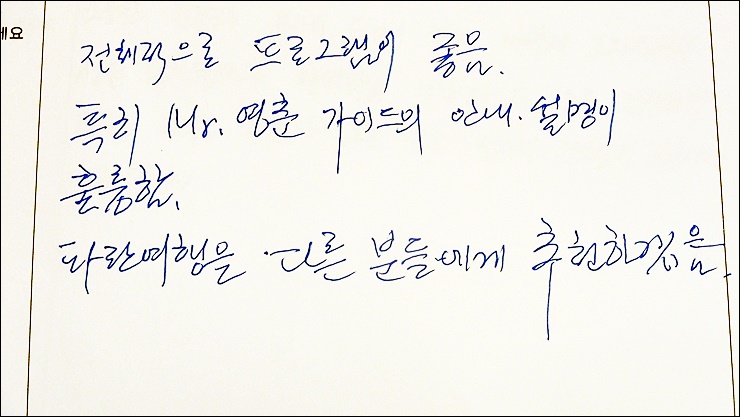 세요
전체적으로 프로그램이 좋음.
특히 Mr. 영춘 가이드의 안내·설명이
훌륭함.
파란여행을 다른 분들에게 추천하겠음.